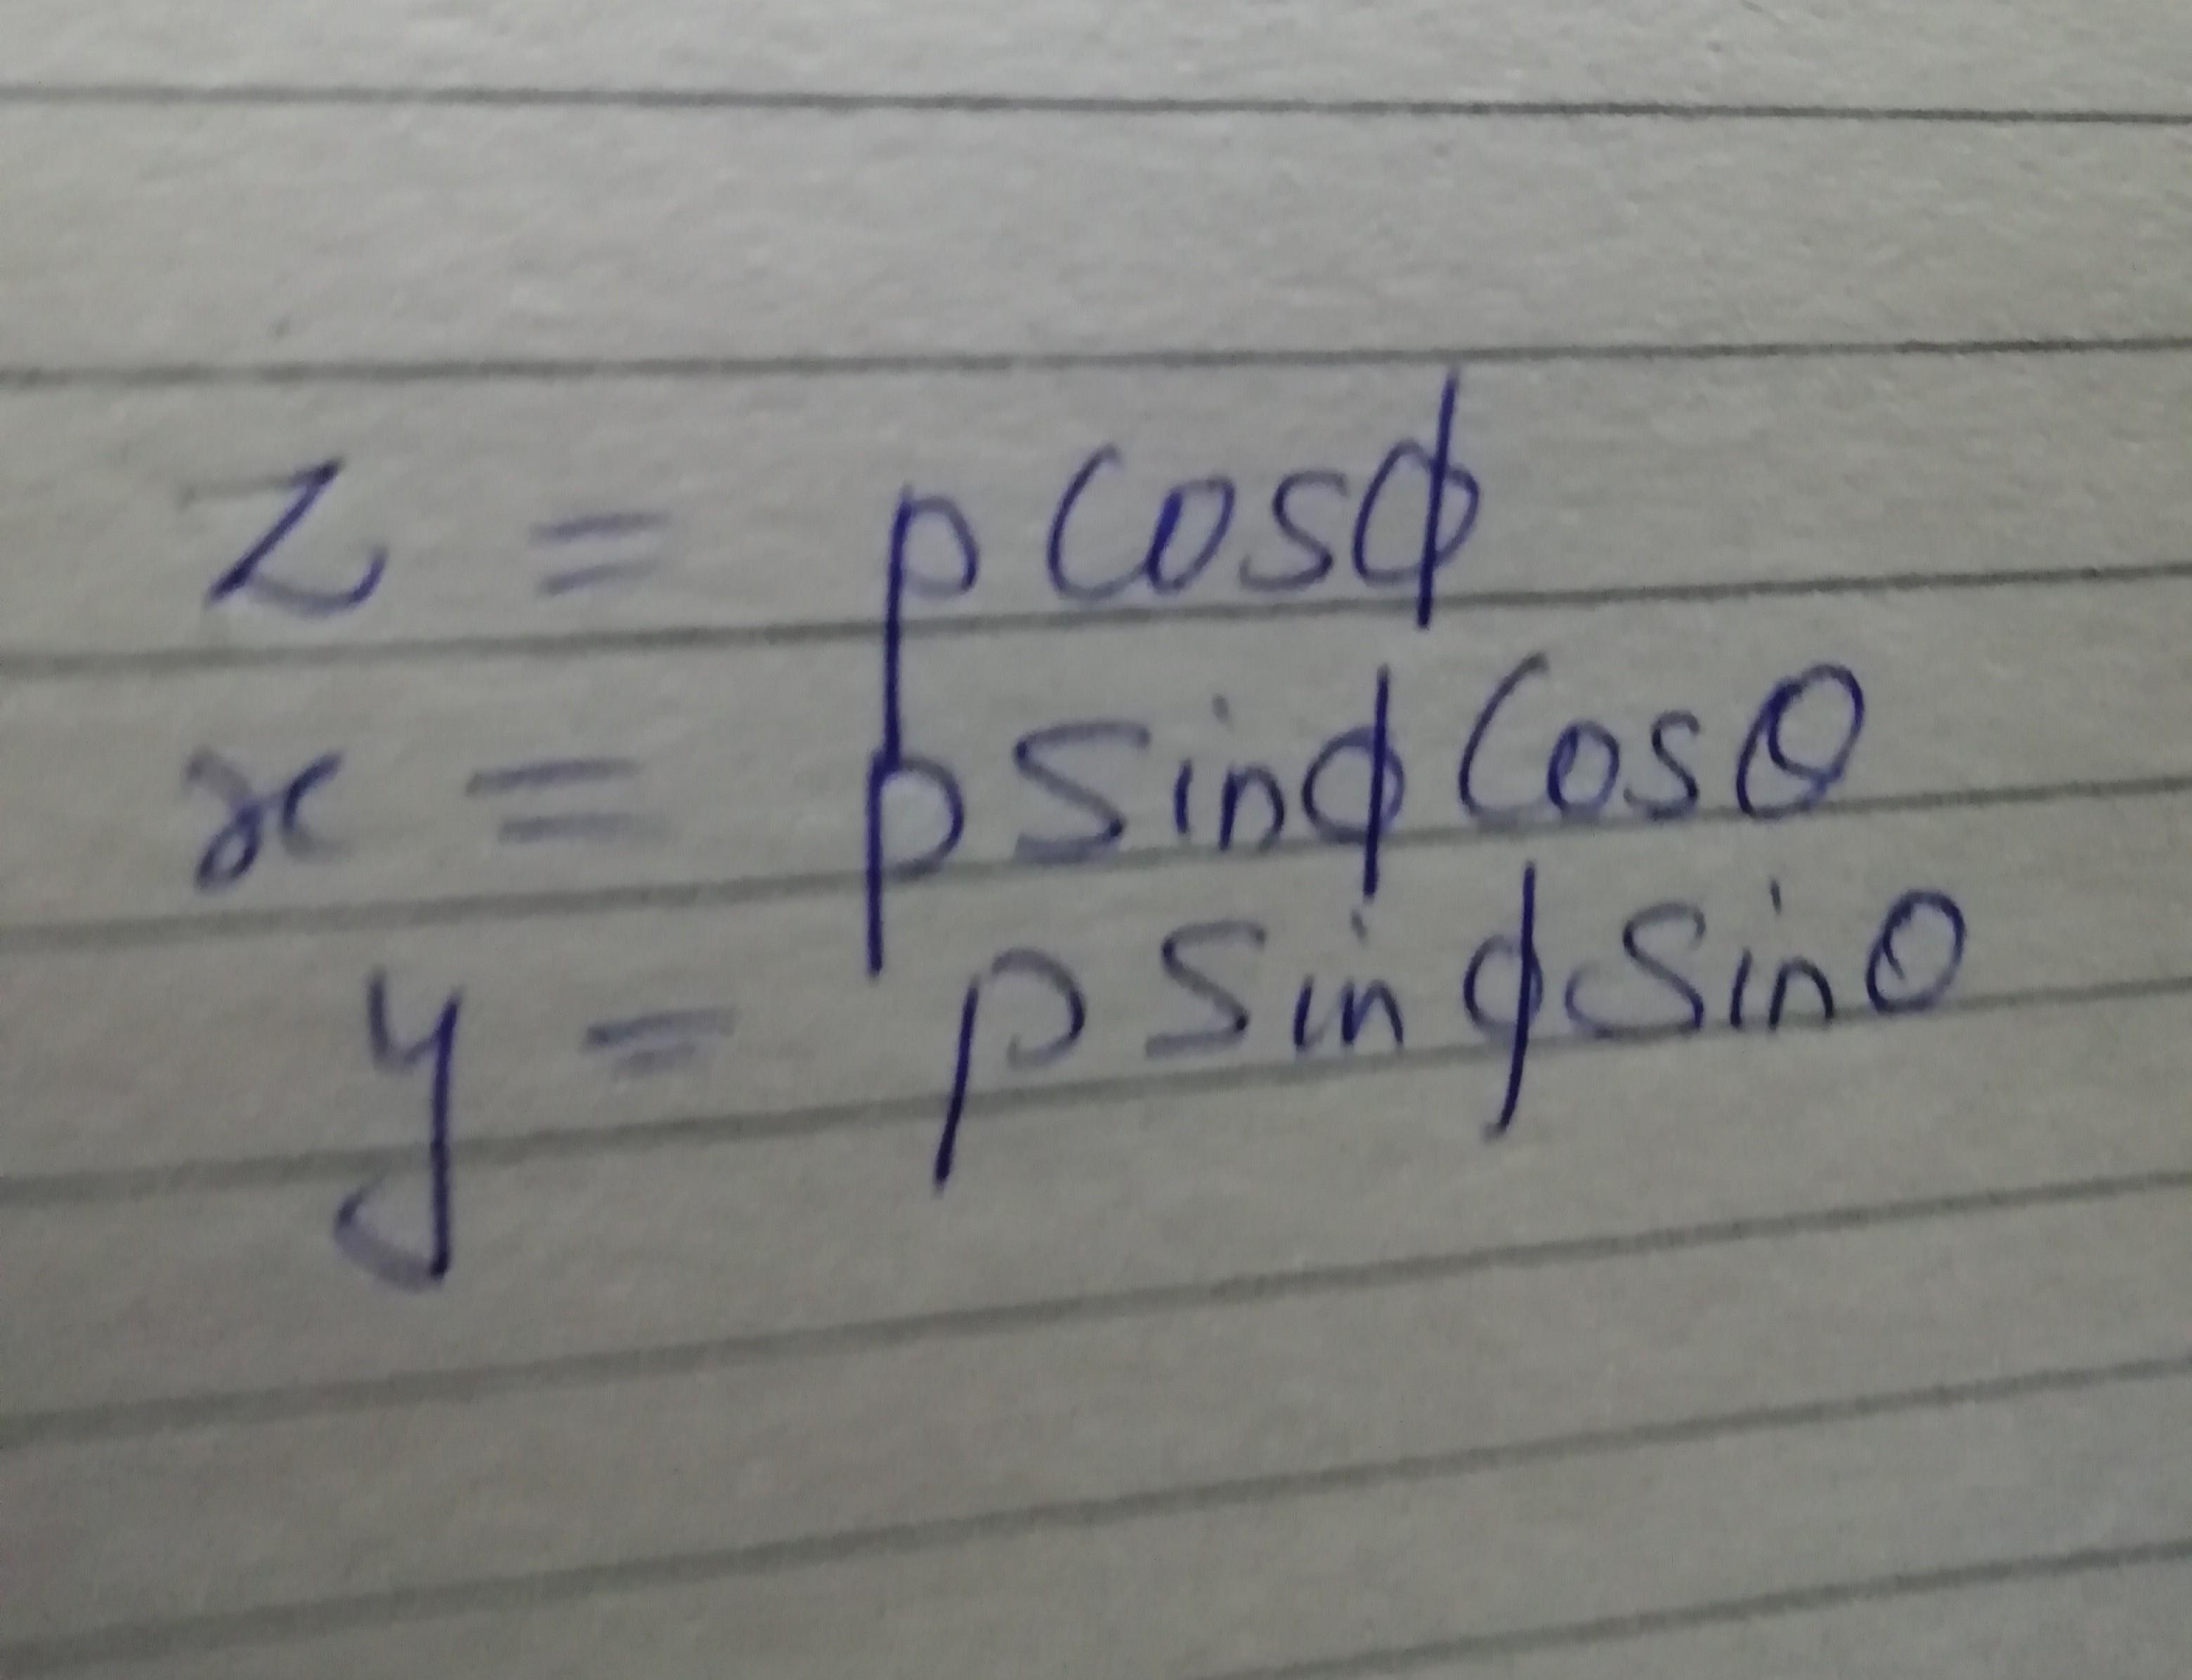 z = ρ cosϕ
x = ρ sinϕ cosθ
y = ρ sin ϕ sinθ